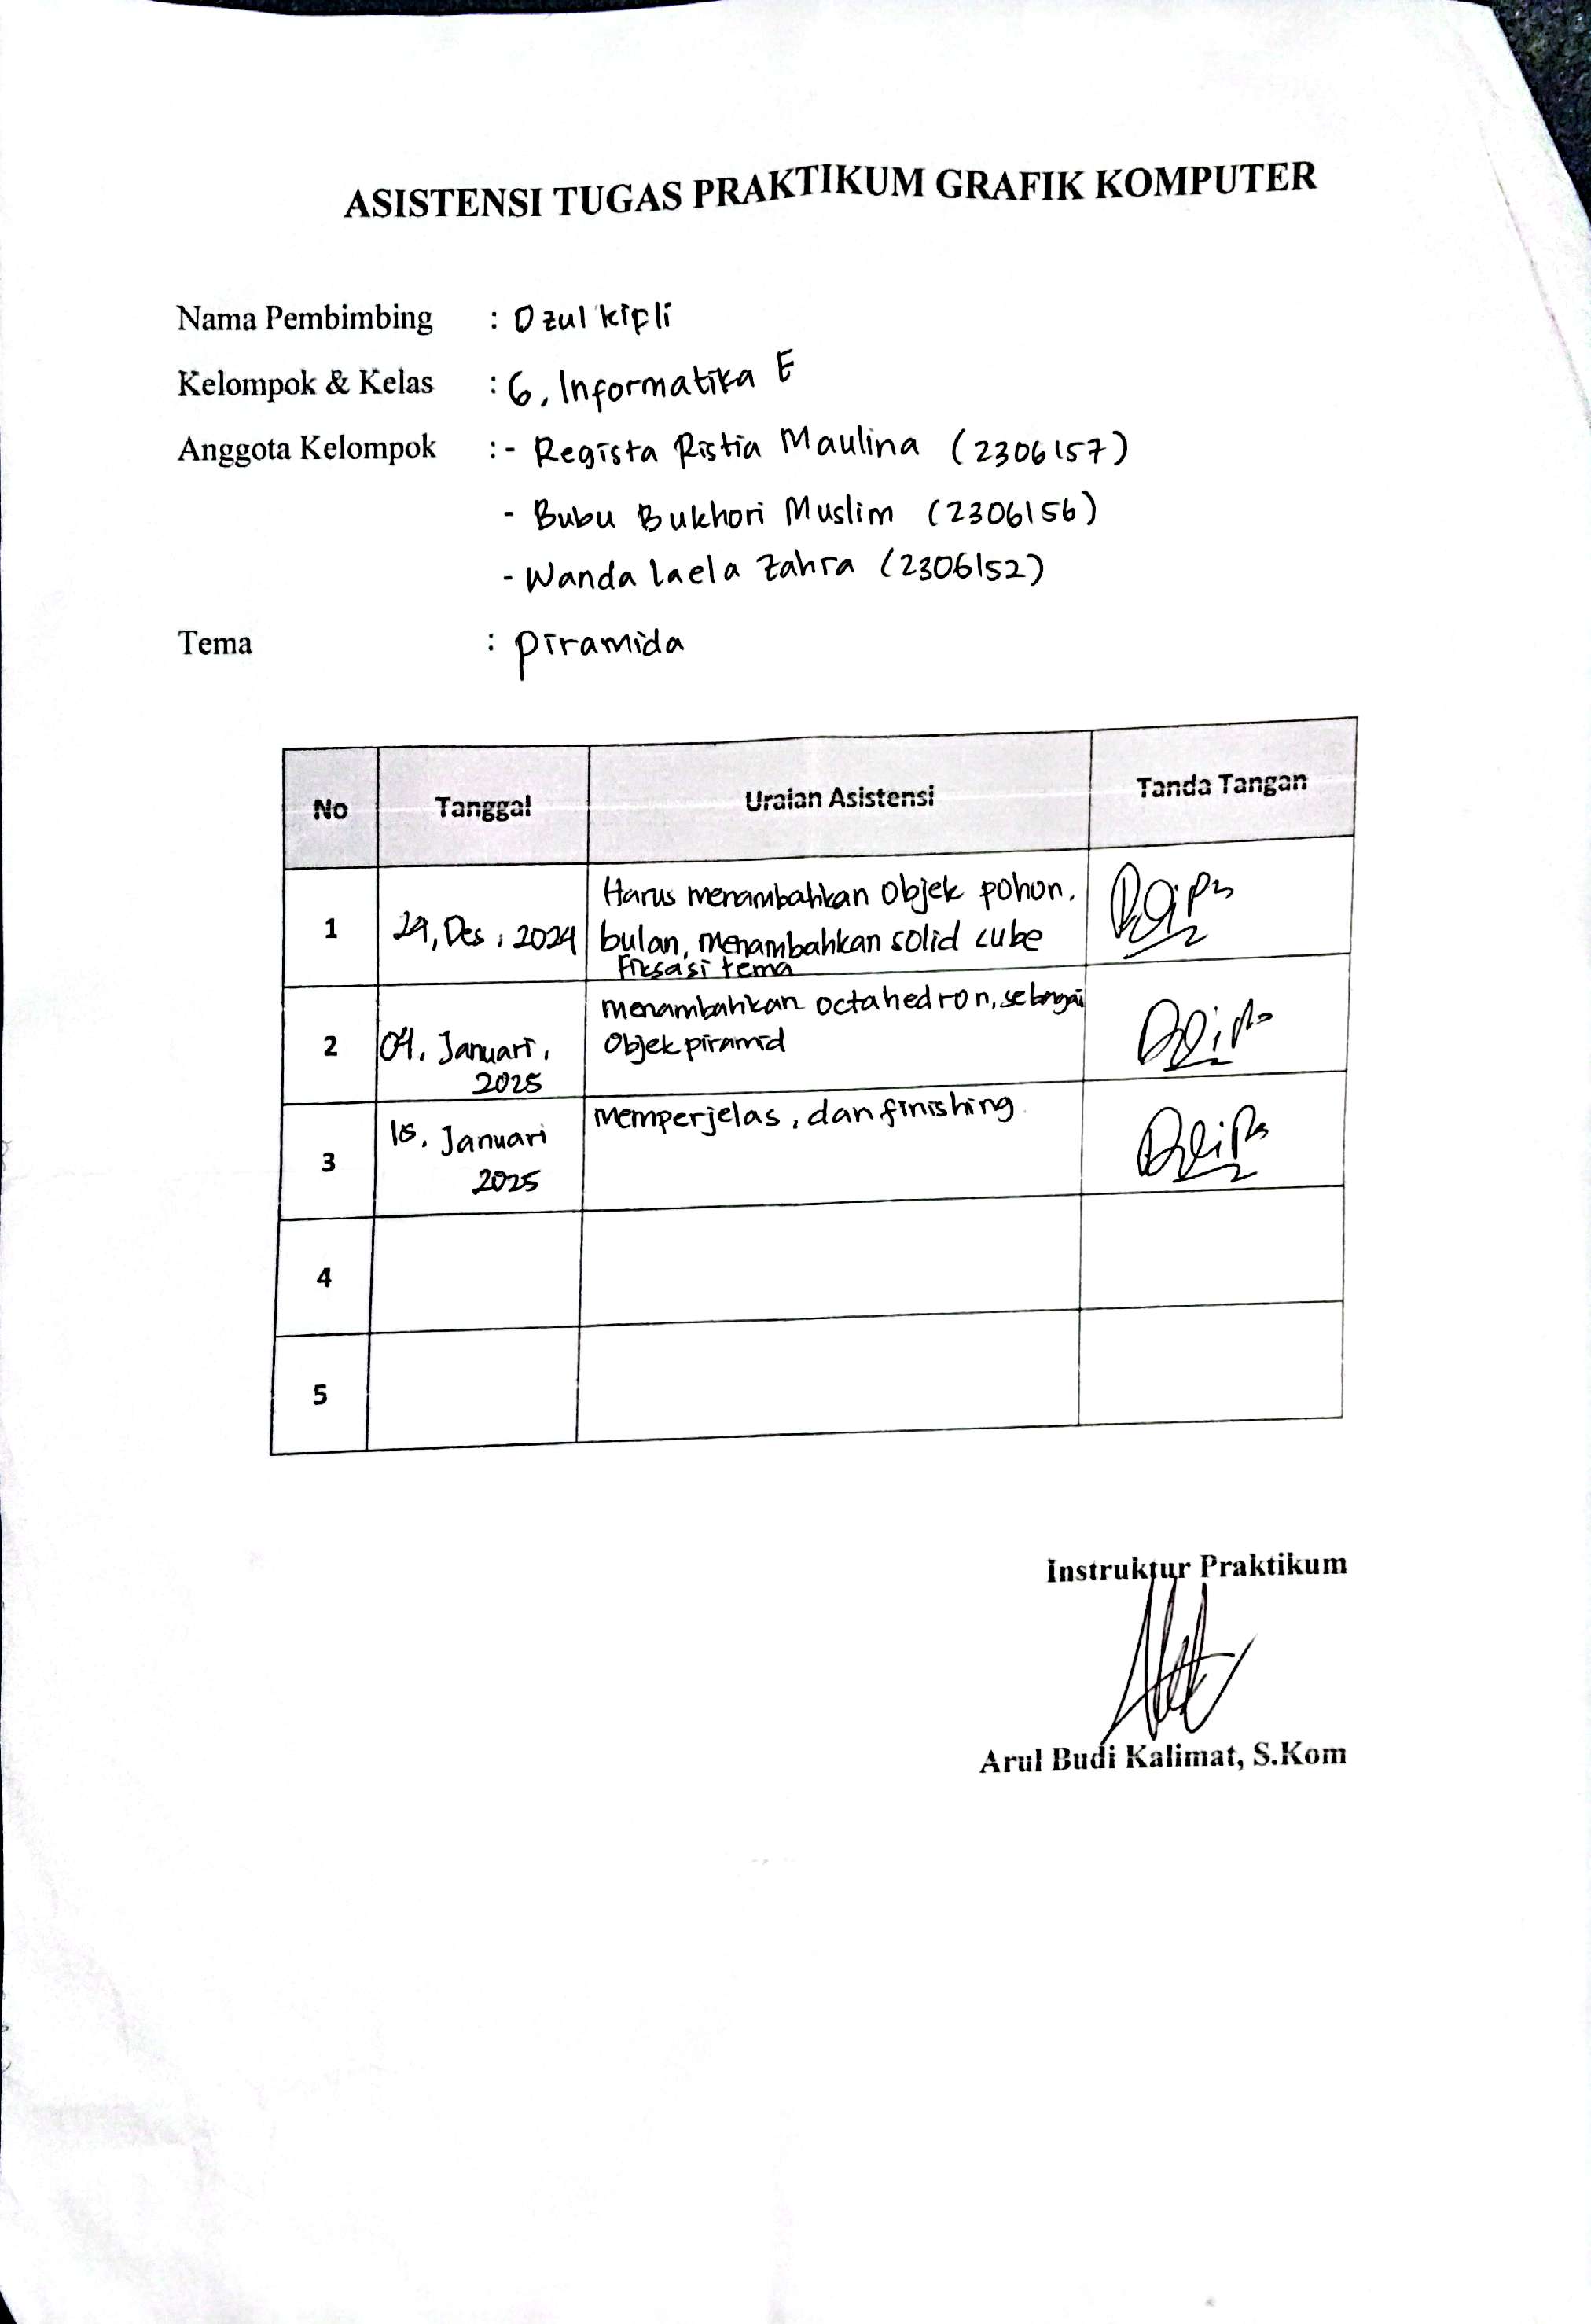 ASISTENSI TUGAS PRAKTIKUM GRAFIK KOMPUTER
Nama Pembimbing : Dzulkipli
Kelompok & Kelas : 6, Informatika E
Anggota Kelompok : - Regista Ristia Maulina (2306157)
- Bubu Bukhori Muslim (2306156)
- Wanda laela Zahra (2306152)
Tema : piramida
No Tanggal Uraian Asistensi Tanda Tangan
Harus menambahkan objek pohon.
1 29, Des, 2024 bulan, menambahkan solid cube
Fiksasi tema
menambahkan octahedron, sebagai
2 04. Januari, Objek piramid
2025
memperjelas, dan finishing.
3 Januari
2025
4
5
Instruktur Praktikum
Arul Budi Kalimat, S.Kom